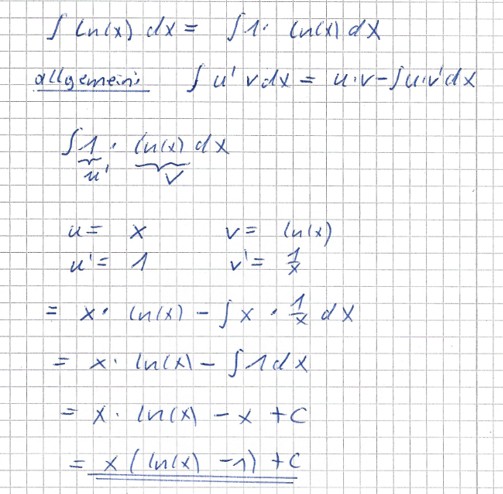 ∫ ln(x) dx = ∫ 1 · ln(x) dx
allgemein: ∫ u' v dx = u · v - ∫ u · v' dx
∫ 1 · ln(x) dx
u' v
u = x v = ln(x)
u' = 1 v' = 1/x
= x · ln(x) - ∫ x · 1/x dx
= x · ln(x) - ∫ 1 dx
= x · ln(x) - x + C
= x (ln(x) - 1) + C